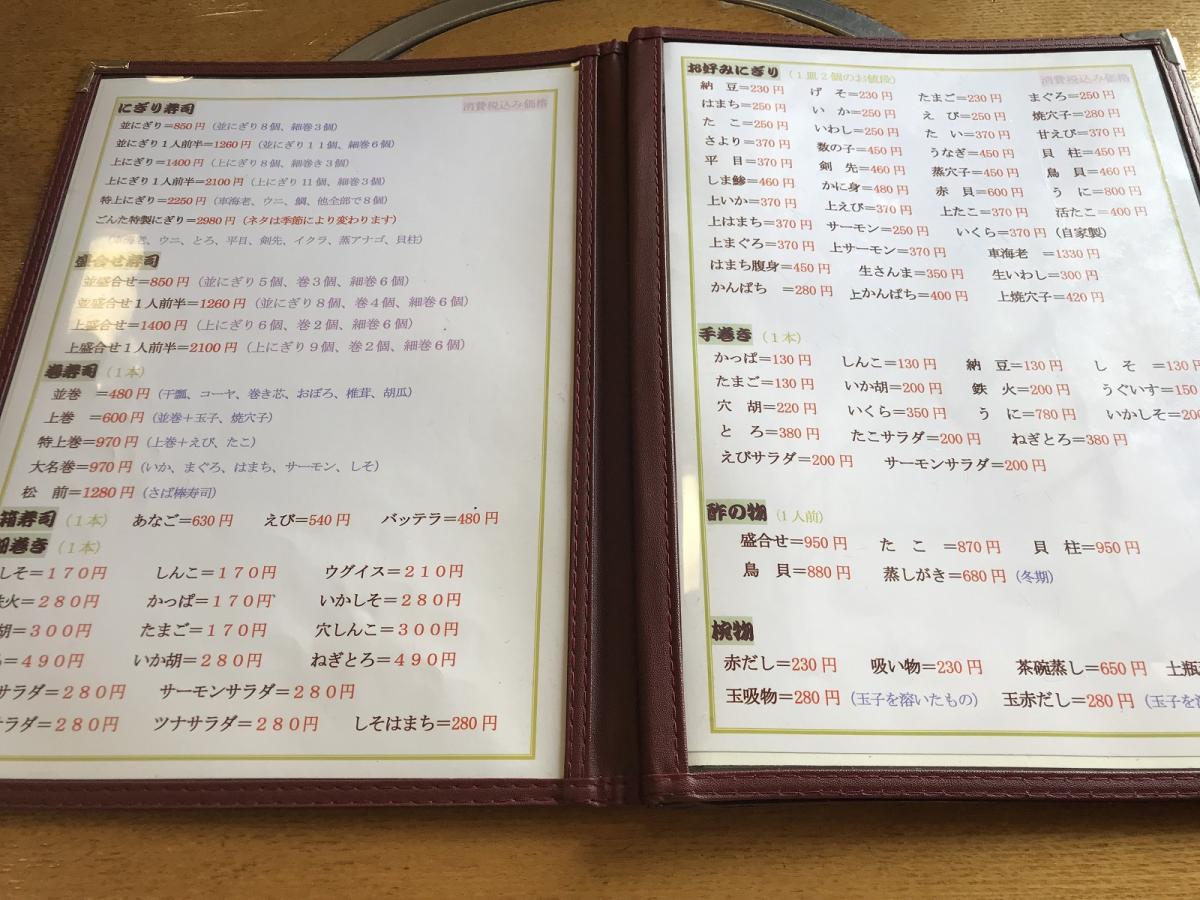 にぎり寿司 消費税込み価格
並にぎり=850円(並にぎり8個、細巻3個)
並にぎり1人前半=1260円(並にぎり11個、細巻6個)
上にぎり=1400円(上にぎり8個、細巻き3個)
上にぎり1人前半=2100円(上にぎり11個、細巻3個)
特上にぎり=2250円(車海老、ウニ、鯛、他全部で8個)
ごんた特製にぎり=2980円(ネタは季節により変わります)
(車海老、ウニ、とろ、平目、剣先、イクラ、蒸アナゴ、貝柱)
盛合せ寿司
並盛合せ=850円(並にぎり5個、巻3個、細巻6個)
並盛合せ1人前半=1260円(並にぎり8個、巻4個、細巻6個)
上盛合せ=1400円(上にぎり6個、巻2個、細巻6個)
上盛合せ1人前半=2100円(上にぎり9個、巻2個、細巻6個)
巻寿司(1本)
並巻 =480円(干瓢、コーヤ、巻き芯、おぼろ、椎茸、胡瓜)
上巻 =600円(並巻+玉子、焼穴子)
特上巻=970円(上巻+えび、たこ)
大名巻=970円(いか、まぐろ、はまち、サーモン、しそ)
松 前=1280円(さば棒寿司)
箱寿司(1本) あなご=630円 えび=540円 バッテラ=480円
細巻き(1本)
しそ=170円 しんこ=170円 ウグイス=210円
鉄火=280円 かっぱ=170円 いかしそ=280円
胡=300円 たまご=170円 穴しんこ=300円
=490円 いか胡=280円 ねぎとろ=490円
サラダ=280円 サーモンサラダ=280円
サラダ=280円 ツナサラダ=280円 しそはまち=280円
お好みにぎり(1皿2個のお値段) 消費税込み価格
納 豆=230円 げ そ=230円 たまご=230円 まぐろ=250円
はまち=250円 い か=250円 え び=250円 焼穴子=280円
た こ=250円 いわし=250円 た い=370円 甘えび=370円
さより=370円 数の子=450円 うなぎ=450円 貝 柱=450円
平 目=370円 剣 先=460円 蒸穴子=450円 鳥 貝=460円
しま鯵=460円 かに身=480円 赤 貝=600円 う に=800円
上いか=370円 上えび=370円 上たこ=370円 活たこ=400円
上はまち=370円 サーモン=250円 いくら=370円(自家製)
上まぐろ=370円 上サーモン=370円 車海老 =1330円
はまち腹身=450円 生さんま=350円 生いわし=300円
かんぱち =280円 上かんぱち=400円 上焼穴子=420円
手巻き(1本)
かっぱ=130円 しんこ=130円 納 豆=130円 し そ =130円
たまご=130円 いか胡=200円 鉄 火=200円 うぐいす=150
穴 胡=220円 いくら=350円 う に=780円 いかしそ=200
と ろ=380円 たこサラダ=200円 ねぎとろ=380円
えびサラダ=200円 サーモンサラダ=200円
酢の物(1人前)
盛合せ=950円 た こ =870円 貝 柱=950円
鳥 貝=880円 蒸しがき=680円(冬期)
椀物
赤だし=230円 吸い物=230円 茶碗蒸し=650円 土瓶
玉吸物=280円(玉子を溶いたもの) 玉赤だし=280円(玉子を